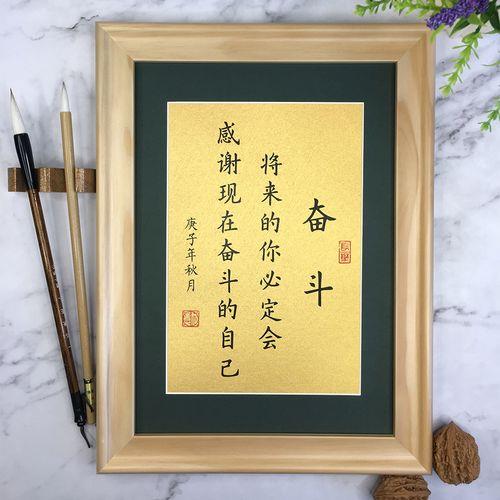 奋斗
将来的你必定会
感谢现在奋斗的自己
庚子年秋月